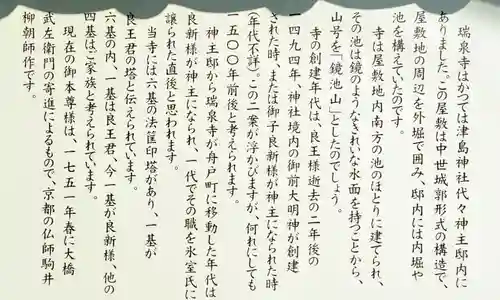 瑞泉寺はかつては津島神社代々神主邸内に
ありました。この屋敷は中世城郭形式の構造で、
屋敷地の周辺を外堀で囲み、邸内には内堀や
池を構えていたのです。
寺は屋敷地内南方の池のほとりに建てられ、
その池は鏡のようなきれいな水面を持つことから、
山号を「鏡池山」としたのでしょう。
寺の創建年代は、良王様逝去の二年後の
一四九四年、神社境内の御前大明神が創建
された時、または御子良新様が神主になられた時
（年代不詳）。この二案が浮かびますが、何れにしても
一五〇〇年前後と考えられます。
神主邸から瑞泉寺が舟戸町に移動した年代は
良新様が神主になられ、一代でその職を氷室氏に
譲られた直後と思われます。
当寺には六基の法篋印塔があり、一基が
良王君の塔と伝えられています。
六基の内、一基は良王君、今一基が良新様、他の
四基はご家族と考えられています。
現在の御本尊様は、一七五一年春に大橋
武左衛門の寄進によるもので、京都の仏師駒井
柳朝師作です。